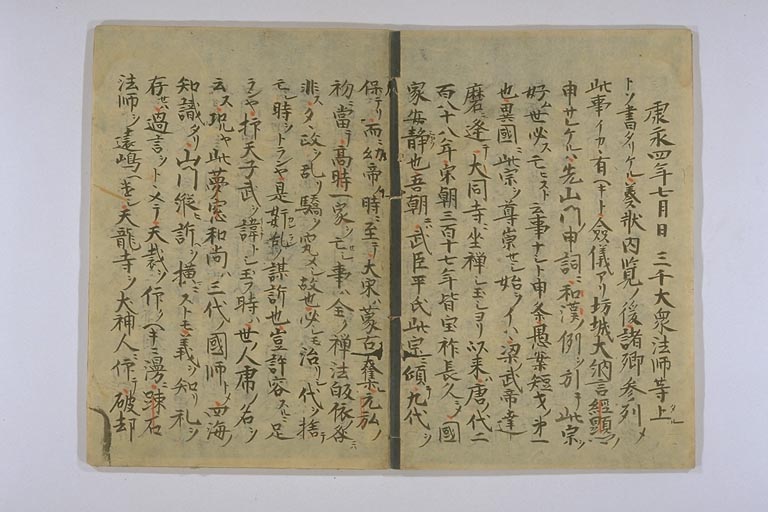 康永四年七月日 三千大衆法師等上
トソ書タリケル奏状内覧ノ後諸卿参列メ
此事イカヽ有ヘキト僉儀アリ坊城大納言經顯
申サレケルハ先山門申詞ニ和漢ノ例ヲ引テ此宗ヲ
好ム世必ス亡ニスト云事ナシト申条愚案短才ノ第一
也異國ニ此宗ヲ尊崇セシ始ヲイハヽ梁ノ武帝達
磨ニ逢テ大同寺ニ坐禅シ玉シヨリ以来唐ノ代二
百八十八年宋朝三百十七年皆宝祚長久ニメ國
家安静也吾朝ニハ武臣平氏此宗ニ傾テ九代ヲ
保テリ而ニ幼帝ノ時ニ至テ大宋ハ蒙古ニ奪レ元弘ノ
初ニ當テ高時一家ヲ亡セシ事ハ全ク禅法皈依ノ咎ニ
非ス只政ヲ乱リ驕ヲ究メシ故也必シモ治リシ代ヲ捨テ
亡シ時ヲトランヤ是姧乱ノ謀訴也豈許容スルニ足
ランヤ抑天子武ヲ諱トシ玉フ時ハ世ノ人虎ノ名ヲ
云ス況ヤ此夢窓和尚ハ三代ノ國師トメ四海ノ
知識タリ山門縦訴ヲ横ニストモ義ヲ知リ礼ヲ
存セハ過言ヲトヽメテ天裁ヲ仰クヘキニ漫ニ踈石
法師ヲ遠嶋ヘ遣シ天龍寺ヲ犬神人ニ仰テ破却